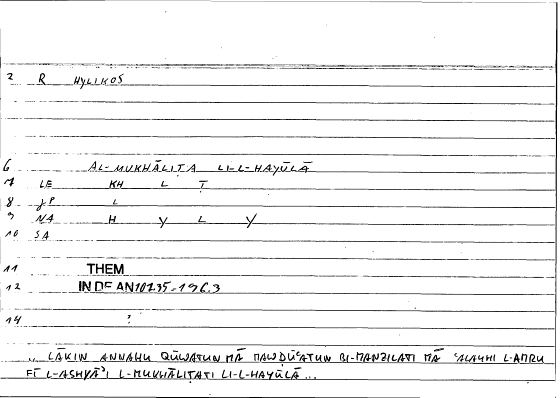 2 R HYLIKOS
6 AL-MUKHĀLIṬA LI-L-HAYŪLĀ
7 LE KH L Ṭ
8 JP L
9 NA H Y L Y
10 SA
11 THEM
12 IN DE AN 10735-196.3
14 ?
„ LĀKIN ANNAHU QŪWATUN MĀ MAWḌŪʿATUN BI-MANZILATI MĀ ʿALAYHI L-AMRU
FĪ L-ASHYĀʾI L-MUKHĀLIṬATI LI-L-HAYŪLĀ ...